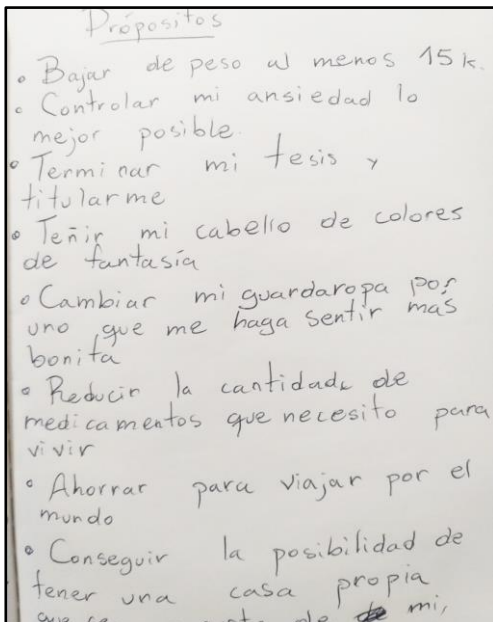 Própositos
• Bajar de peso al menos 15k.
• Controlar mi ansiedad lo
mejor posible.
• Terminar mi tesis y
titularme
• Teñir mi cabello de colores
de fantasía
• Cambiar mi guardaropa por
uno que me haga sentir más
bonita
• Reducir la cantidad de
medicamentos que necesito para
vivir
• Ahorrar para viajar por el
mundo
• Conseguir la posibilidad de
tener una casa propia
que de mi,